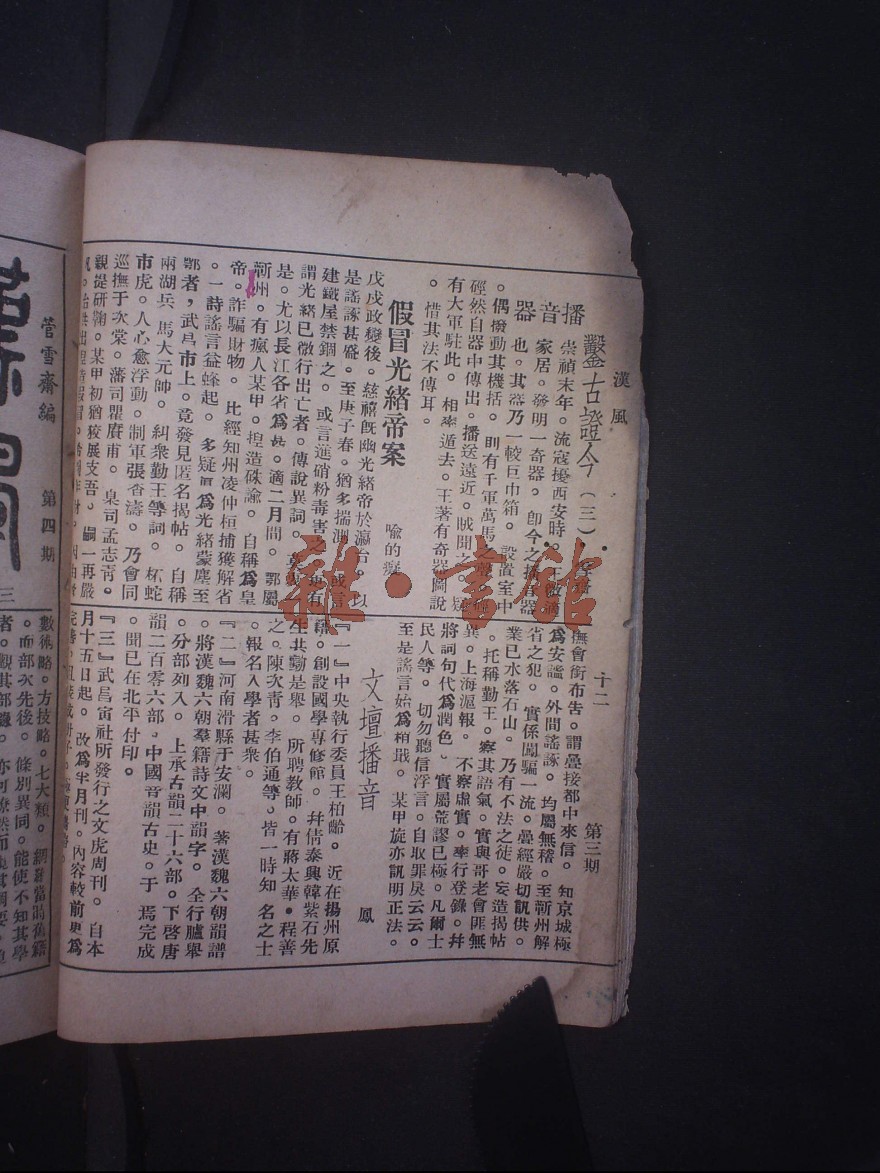 漢風
十二
第三期
鑿古證今(三)
播音器
崇禎末年。流寇擾西安時。
家居。發明一奇器。卽今之播音器
也。其器乃一較巨巾箱。設置室中
。偶撥動其機括。則有千軍萬馬之聲
硜然自器中傳出。播送遠近。賊聞之。疑
有大軍駐此。相率遁去。王著有奇器圖說
。惜其法不傳耳。
假冒光緒帝案
喻的癡
戊戌政變後。慈禧旣幽光緒帝於瀛台。以
是謠諑甚盛。至庚子春。猶多揣測。或言
建鐵屋禁錮之。或言進硝粉毒害之。更有
謂光緒已微行出亡者。傳說異詞。
是。尤以長江各省爲甚。適二月間。鄂屬
蘄州。有瘋人某甲。揑造硃諭。自稱爲皇
帝。詐騙財物。比經知州凌仲桓捕獲解省
。一詩謠言益蜂起。多疑爲光緒蒙塵至
鄂者,武昌市上。竟發見匿名揭帖。自稱
兩湖兵馬大元帥。糾衆勤王等詞。杯蛇
市虎。人心愈浮動。制軍張香濤。乃會同
巡撫于次棠。藩司瞿賡甫。臬司孟志青。
親提研鞠。某甲初猶狡展支吾。嗣一再嚴
撫會銜布告。謂疊接都中來信。知京城極
爲安謐。外間謠諑。均屬無稽。至蘄州解
省之犯。實係鬨騙一流。疊經嚴切訊供。
業已水落石山。乃有不法之徒。妄造揭帖
。托稱勤王。察其語氣。實與哥老會匪無
異。上海滬報。不察虛實。率行登錄。幷
將詞句代爲潤色。實屬荒謬已極。凡爾士
民人等。切勿聽信浮言。自取罪戾云云。
至是謠言始爲稍戢。某甲旋亦訊明正法。
文壇播音
鳳
『一』中央執行委員王柏齡。近在揚州原
籍。創設國學專修館。幷倩泰興韓紫石先
生共勷是舉。所聘教師。有蔣太華•程善
之。陳次青。李伯通等。皆一時知名之士
。報名入學者甚衆。
『二』河南滑縣于安瀾。著漢魏六朝韻譜
。將漢魏六朝羣籍詩文中韻字。全行臚舉
。分部列入。上承古韻二十六部。下啓唐
韻二百零六部。中國音韻古史。于焉完成
。聞已在北平付印。
『三』武昌寅社所發行之文虎周刊。自本
月十五日起。改爲半月刊。內容較前更爲
管雪齋編
第四期
三
數術略。方技略。七大類。網羅當時舊籍
。而部次先後。條別異同。能使不知其學
者。觀其部
雜·書館